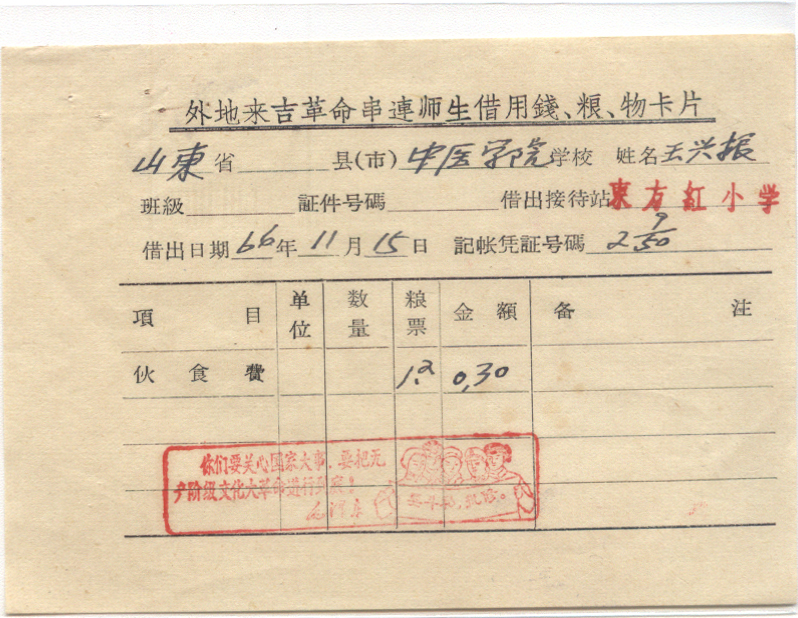 外地来吉革命串連师生借用錢、粮、物卡片
山東省 县(市) 中医学院学校 姓名王兴振
班級 証件号碼 借出接待站東方红小学
借出日期66年11月15日 記帐凭証号碼 2 9/50
項目 单位 数量 粮票 金額 备注
伙食費 1.2 0.30
你们要关心国家大事，要把无
产阶级文化大革命进行到底！
毛泽东